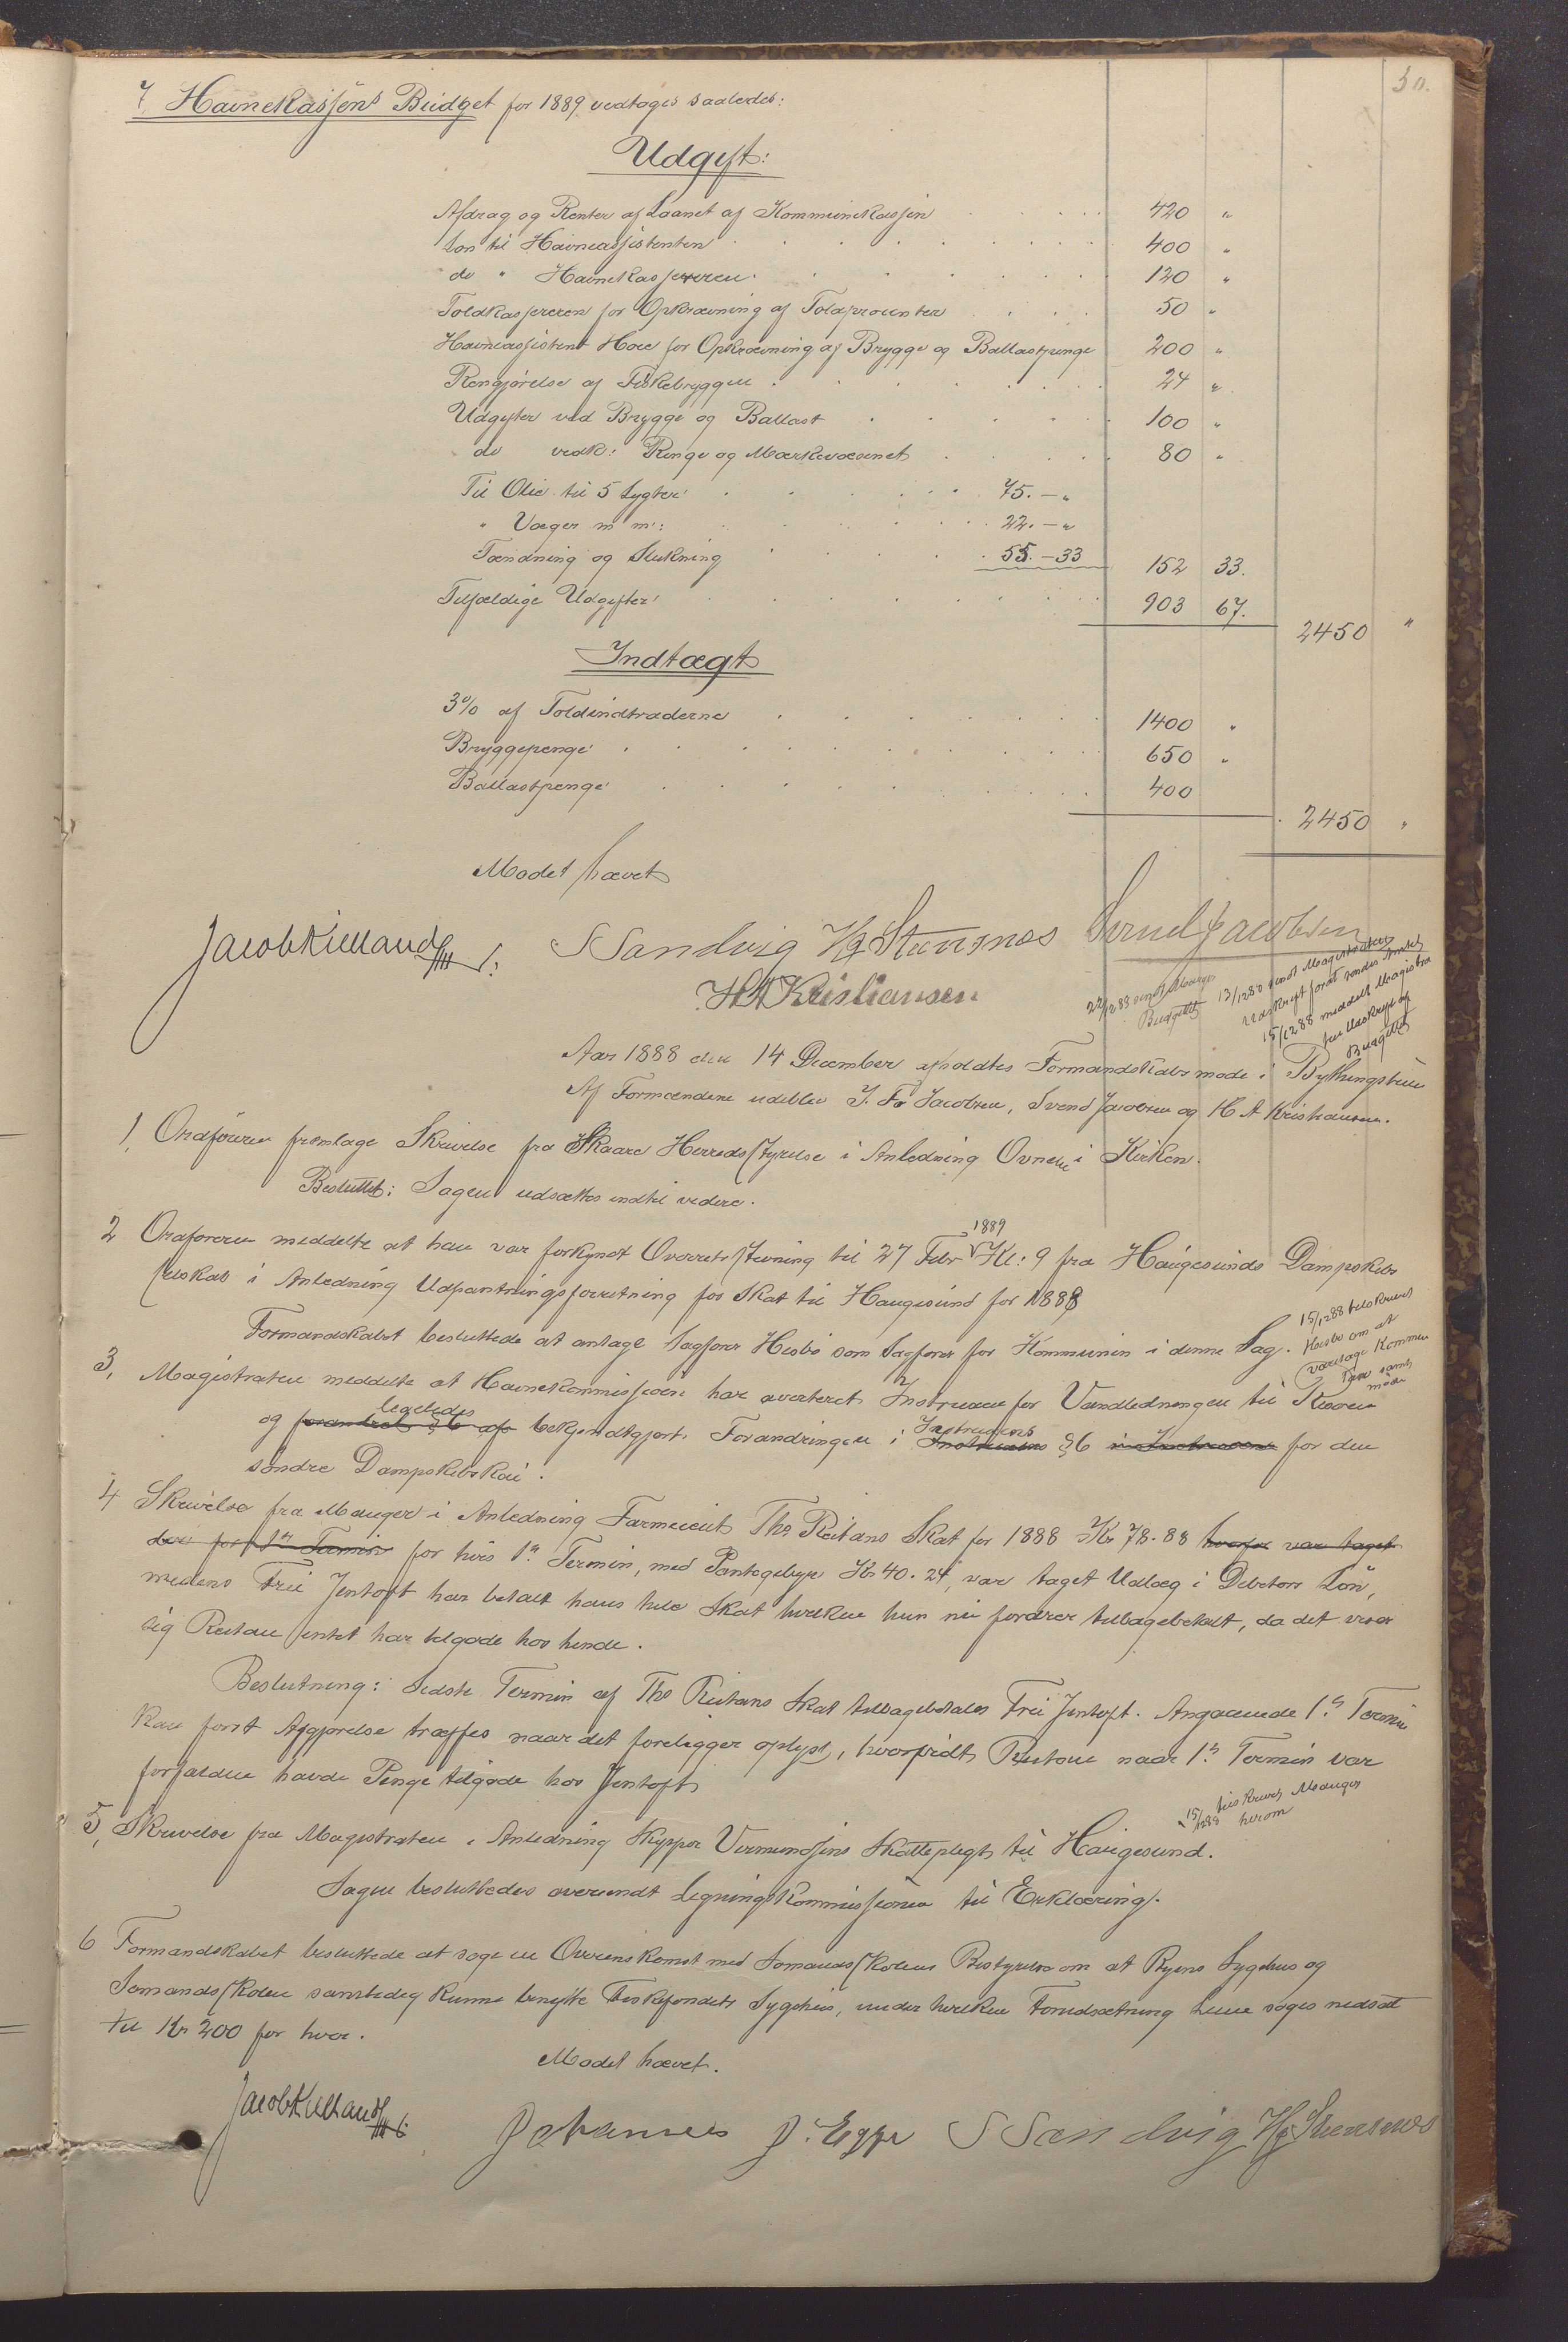 30.
7. Havnekassens Budget for 1889 vedtoges saaledes:
Udgift:
Afdrag og Renter af Laanet af Kommunekassen . . . . 420 "
Løn til Havneassistenten . . . . 400 "
do " Havnekassereren . . . . 120 "
Toldkassereren for Opkrævning af Toldprocenter . . . . 50 "
Havneassistent Hoie for Opkrævning af Brygge og Ballastpenge 200 "
Rengjørelse af Fiskebryggen . . . . 24 "
Udgifter ved Brygge og Ballast . . . . 100 "
do vedk: Ringe og Mærkevæsenet . . . . 80 "
Til Olie til 5 Lygter . . . . 75.-"
" Væger m m: . . . . 22.-"
Tændning og Slukning . . . . 55.-33 152 33.
Tilfældige Udgifter . . . . 903 67.
2450 "
Indtægt
3% af Toldindtraderne . . . . 1400 "
Bryggepenge . . . . 650 "
Ballastpenge . . . . 400
2450 "
Mødet hævet
Jacob Kielland S Sandvig Svend Jacobsen
H A Kristiansen
22/1288 sendt
Budgettet
13/1288 sendt Magistraten
Udskrift forat sendes Amtet
15/1288 meddelt Magistra
ten Udskrift af
Budgettet
Aar 1888 den 14 December afholdtes Formandskabsmøde i Bythingstuen
Af Formændene udeblev J. Fr Jacobsen, Svend Jacobsen og H A Kristiansen.
1, Ordføreren fremlagde Skrivelse fra Skaare Herredsstyrelse i Anledning Ovnene i Kirken.
Besluttet: Sagen udsættes indtil videre.
2 Ordføreren meddelte at han var forkyndt Overrets Stevning til 27 Febr 1889 Kl: 9 fra Haugesunds Dampskibs
selskab i Anledning Udpantningsforretning for Skat til Haugesund for 1888
Formandskabet besluttede at antage Sagfører Hesbø som Sagfører for Kommunen i denne Sag.
15/1288 tilskrevet
Hesbø om at
varetage Kommu
nens
møde
3, Magistraten meddelte at Havnekommissionen har averteret Instruxen for Vandledningen til Kaien
og forandret §6 af ligeledes bekjendtgjort Forandringen i Instruxens §6 for den
søndre Dampskibskai.
4 Skrivelse fra Mauger i Anledning Farmaceut Ths Reitans Skat for 1888 Kr 78.88 hvorfor var taget
der for 1ste Termin for hvis 1ste Termin, med Pantegebyr Kr 40.24, var taget Udlæg i Debitors Løn,
medens Frü Jentoft har betalt hans hele Skat hvilken hun nu fordrer tilbagebetalt, da det viser
sig Reitan intet har tilgode hos hende.
Beslutning: Sidste Termin af Ths Reitans Skat tilbagebetales Frü Jentoft. Angaaende 1ste Termin
kan først Afgjørelse træffes naar det foreligger oplyst, hvorvidt Reitan naar 1ste Termin var
forfalden havde Penge tilgode hos Jentoft
15/1288 tilskrevet Mauger
herom
5, Skrivelse fra Magistraten i Anledning Skipper Vermundsens Skattepligt til Haugesund.
Sagen besluttedes oversendt Ligningskommissionen til Erklæring.
6 Formandskabet besluttede at søge en Overenskomst med Sømandsskolens Bestyrelse om at Byens Sygehus og
Sømandsskolen samtidig kunne benytte Fiskefondets Sygehus, under hvilken Forudsætning Leien søges nedsat
til Kr 200 for hver.
Mødet hævet.
Jacob Kielland Johannes J. Egge S Sandvig